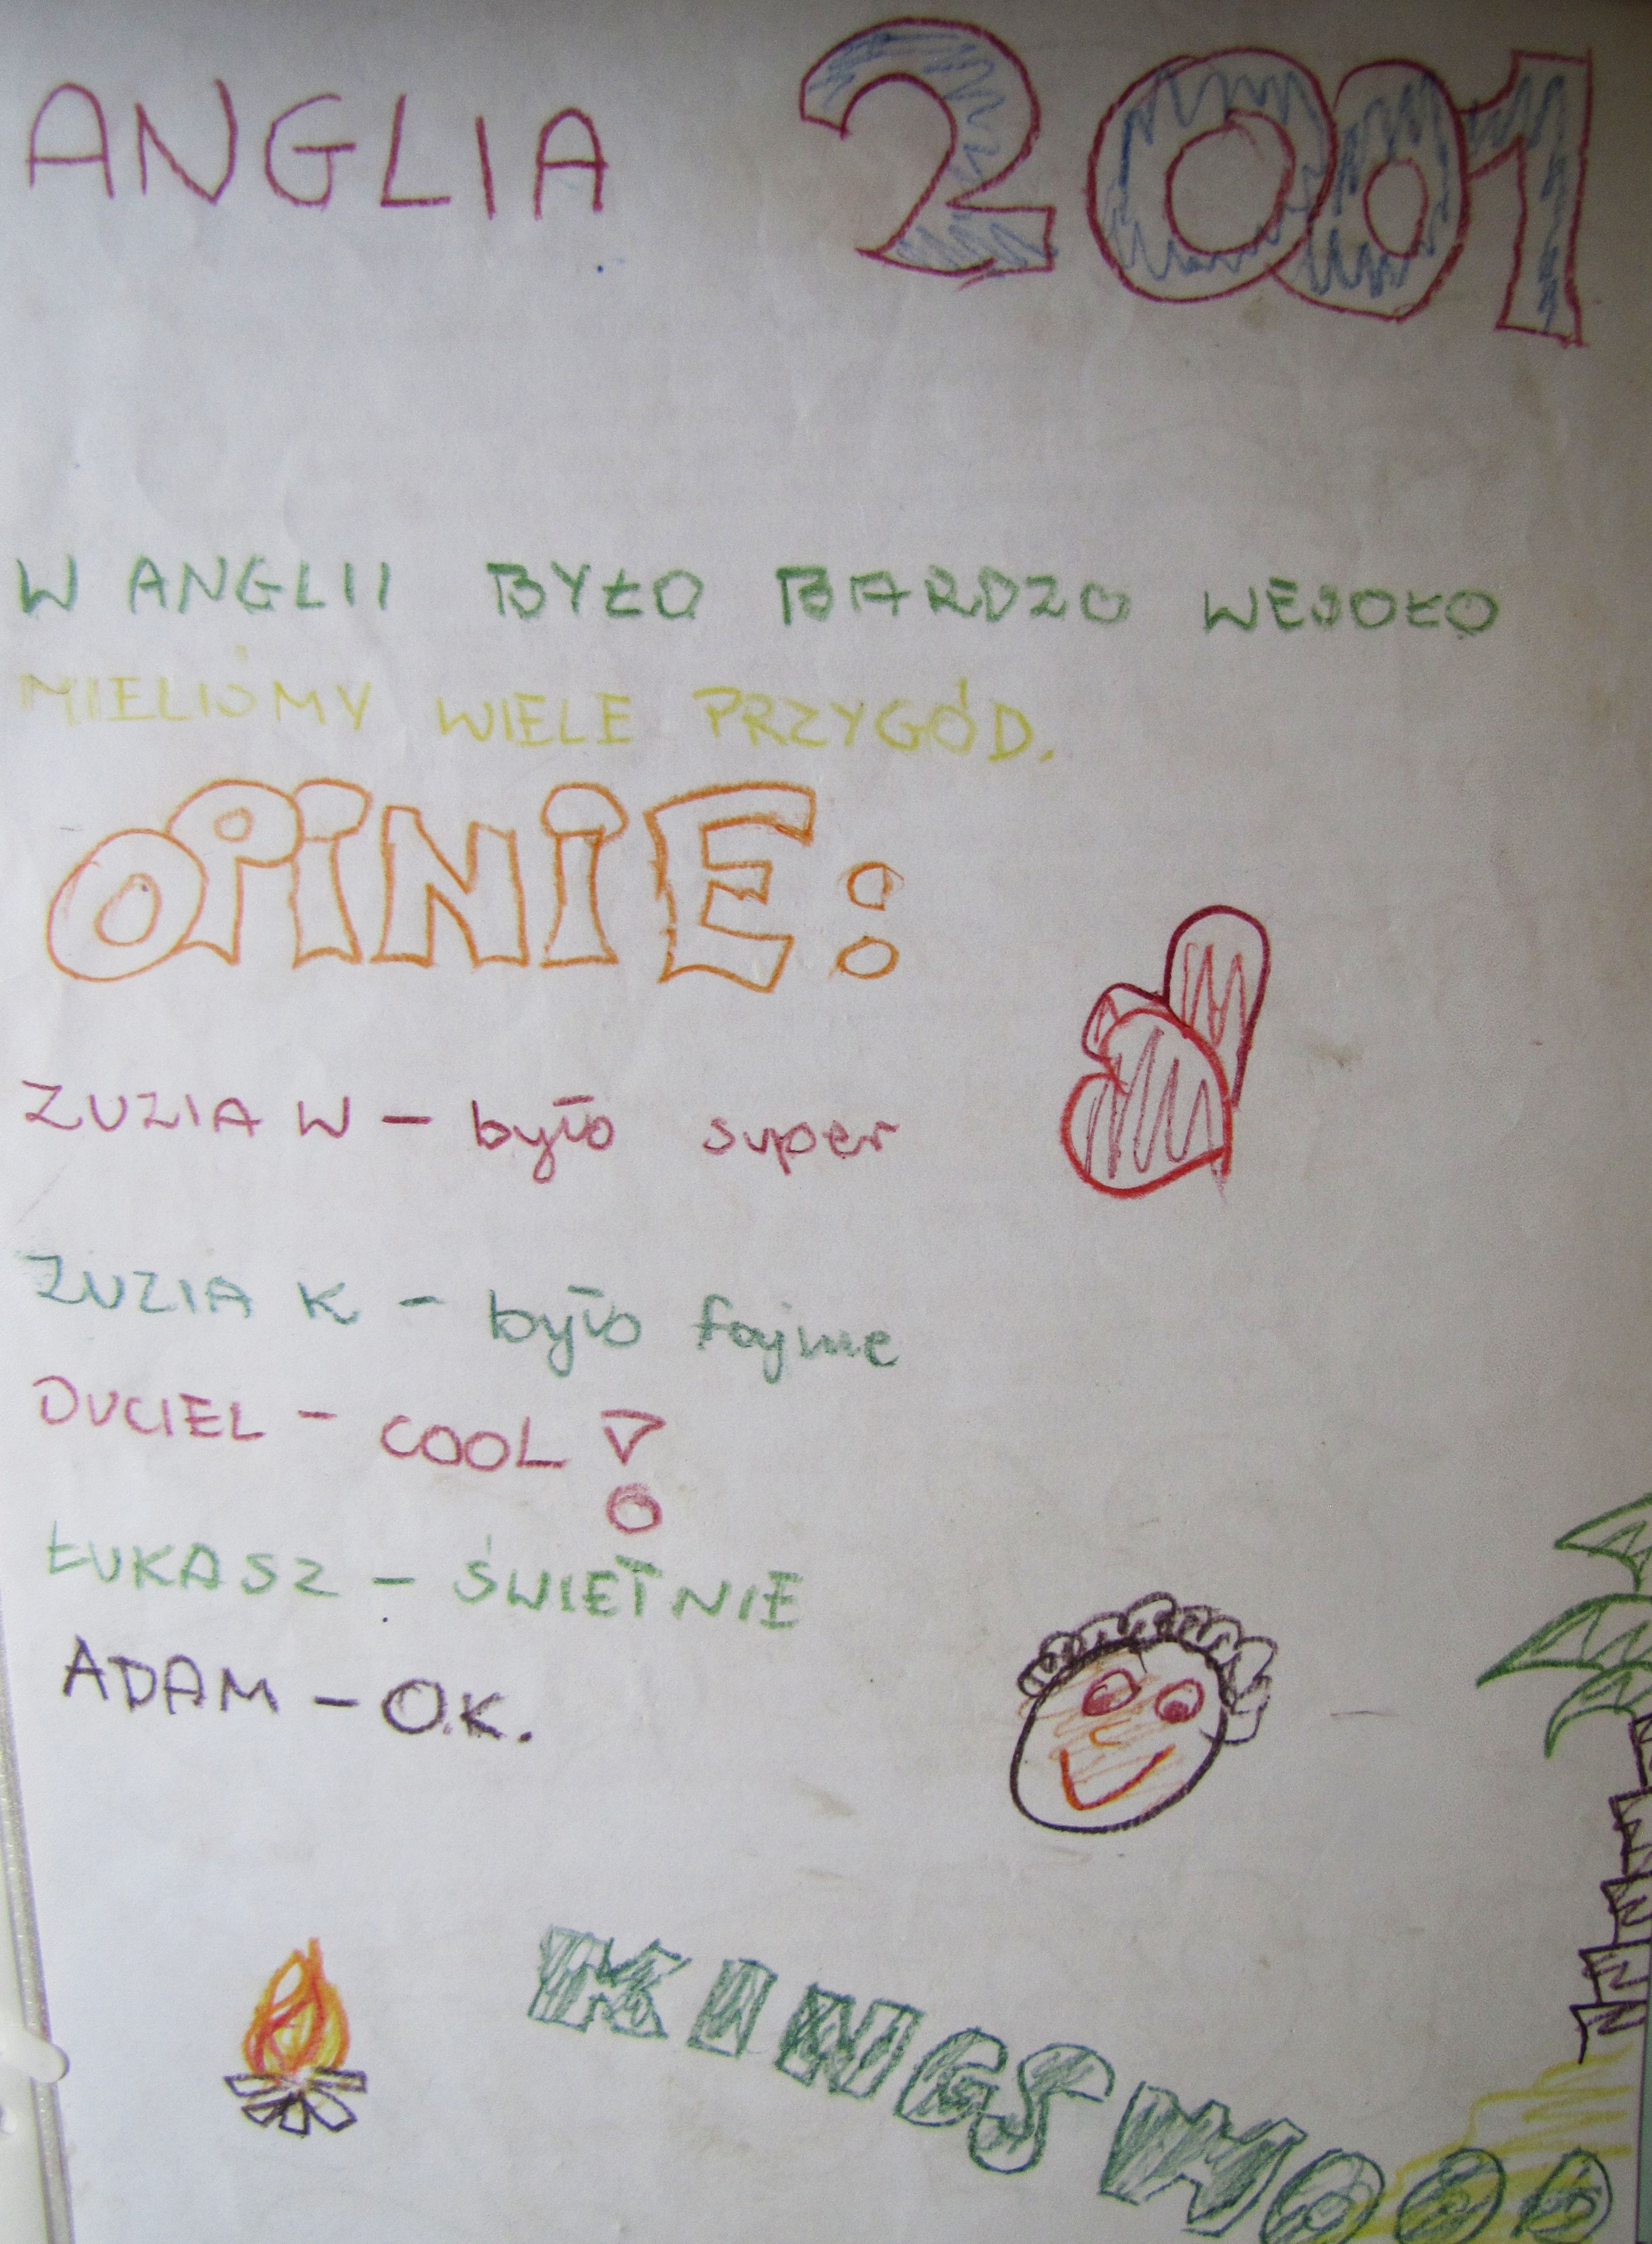 ANGLIA 2001
W ANGLII BYŁO BARDZO WESOŁO
MIELIŚMY WIELE PRZYGÓD.
OPINIE:
ZUZIA W – było super
ZUZIA K – było fajne
DUCIEL – COOL!
ŁUKASZ – ŚWIETNIE
ADAM – O.K.
KINGSWOOD